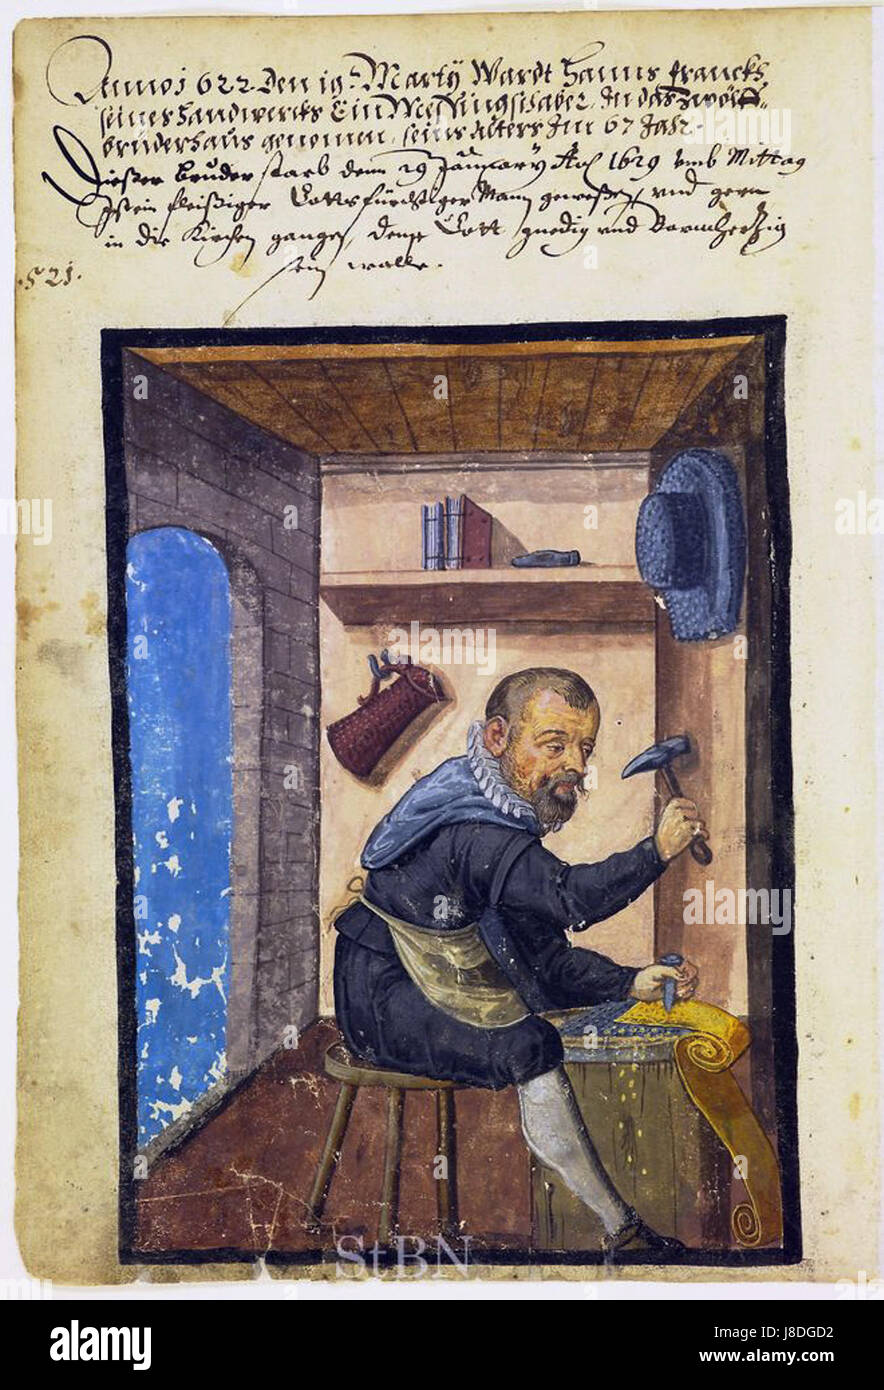 Anno 1622 den 19. Marty Wardt Hanns Franckh
seines handwercks Ein Messingschaber, In das Zwölff
brüderhaus genomen, seins alters Im 67 Jahr.
Dießer bruder starb denn 29 January Aō 1629 umb Mittag
Ist ein fleißiger Gottsfürchtiger Mann geweßen, und gern
in die Kirchen gangen, deme Gott gnedig und Barmhertzig
sein wolle.
.521.
StBN
alamy
Image ID: J8DGD2
www.alamy.com